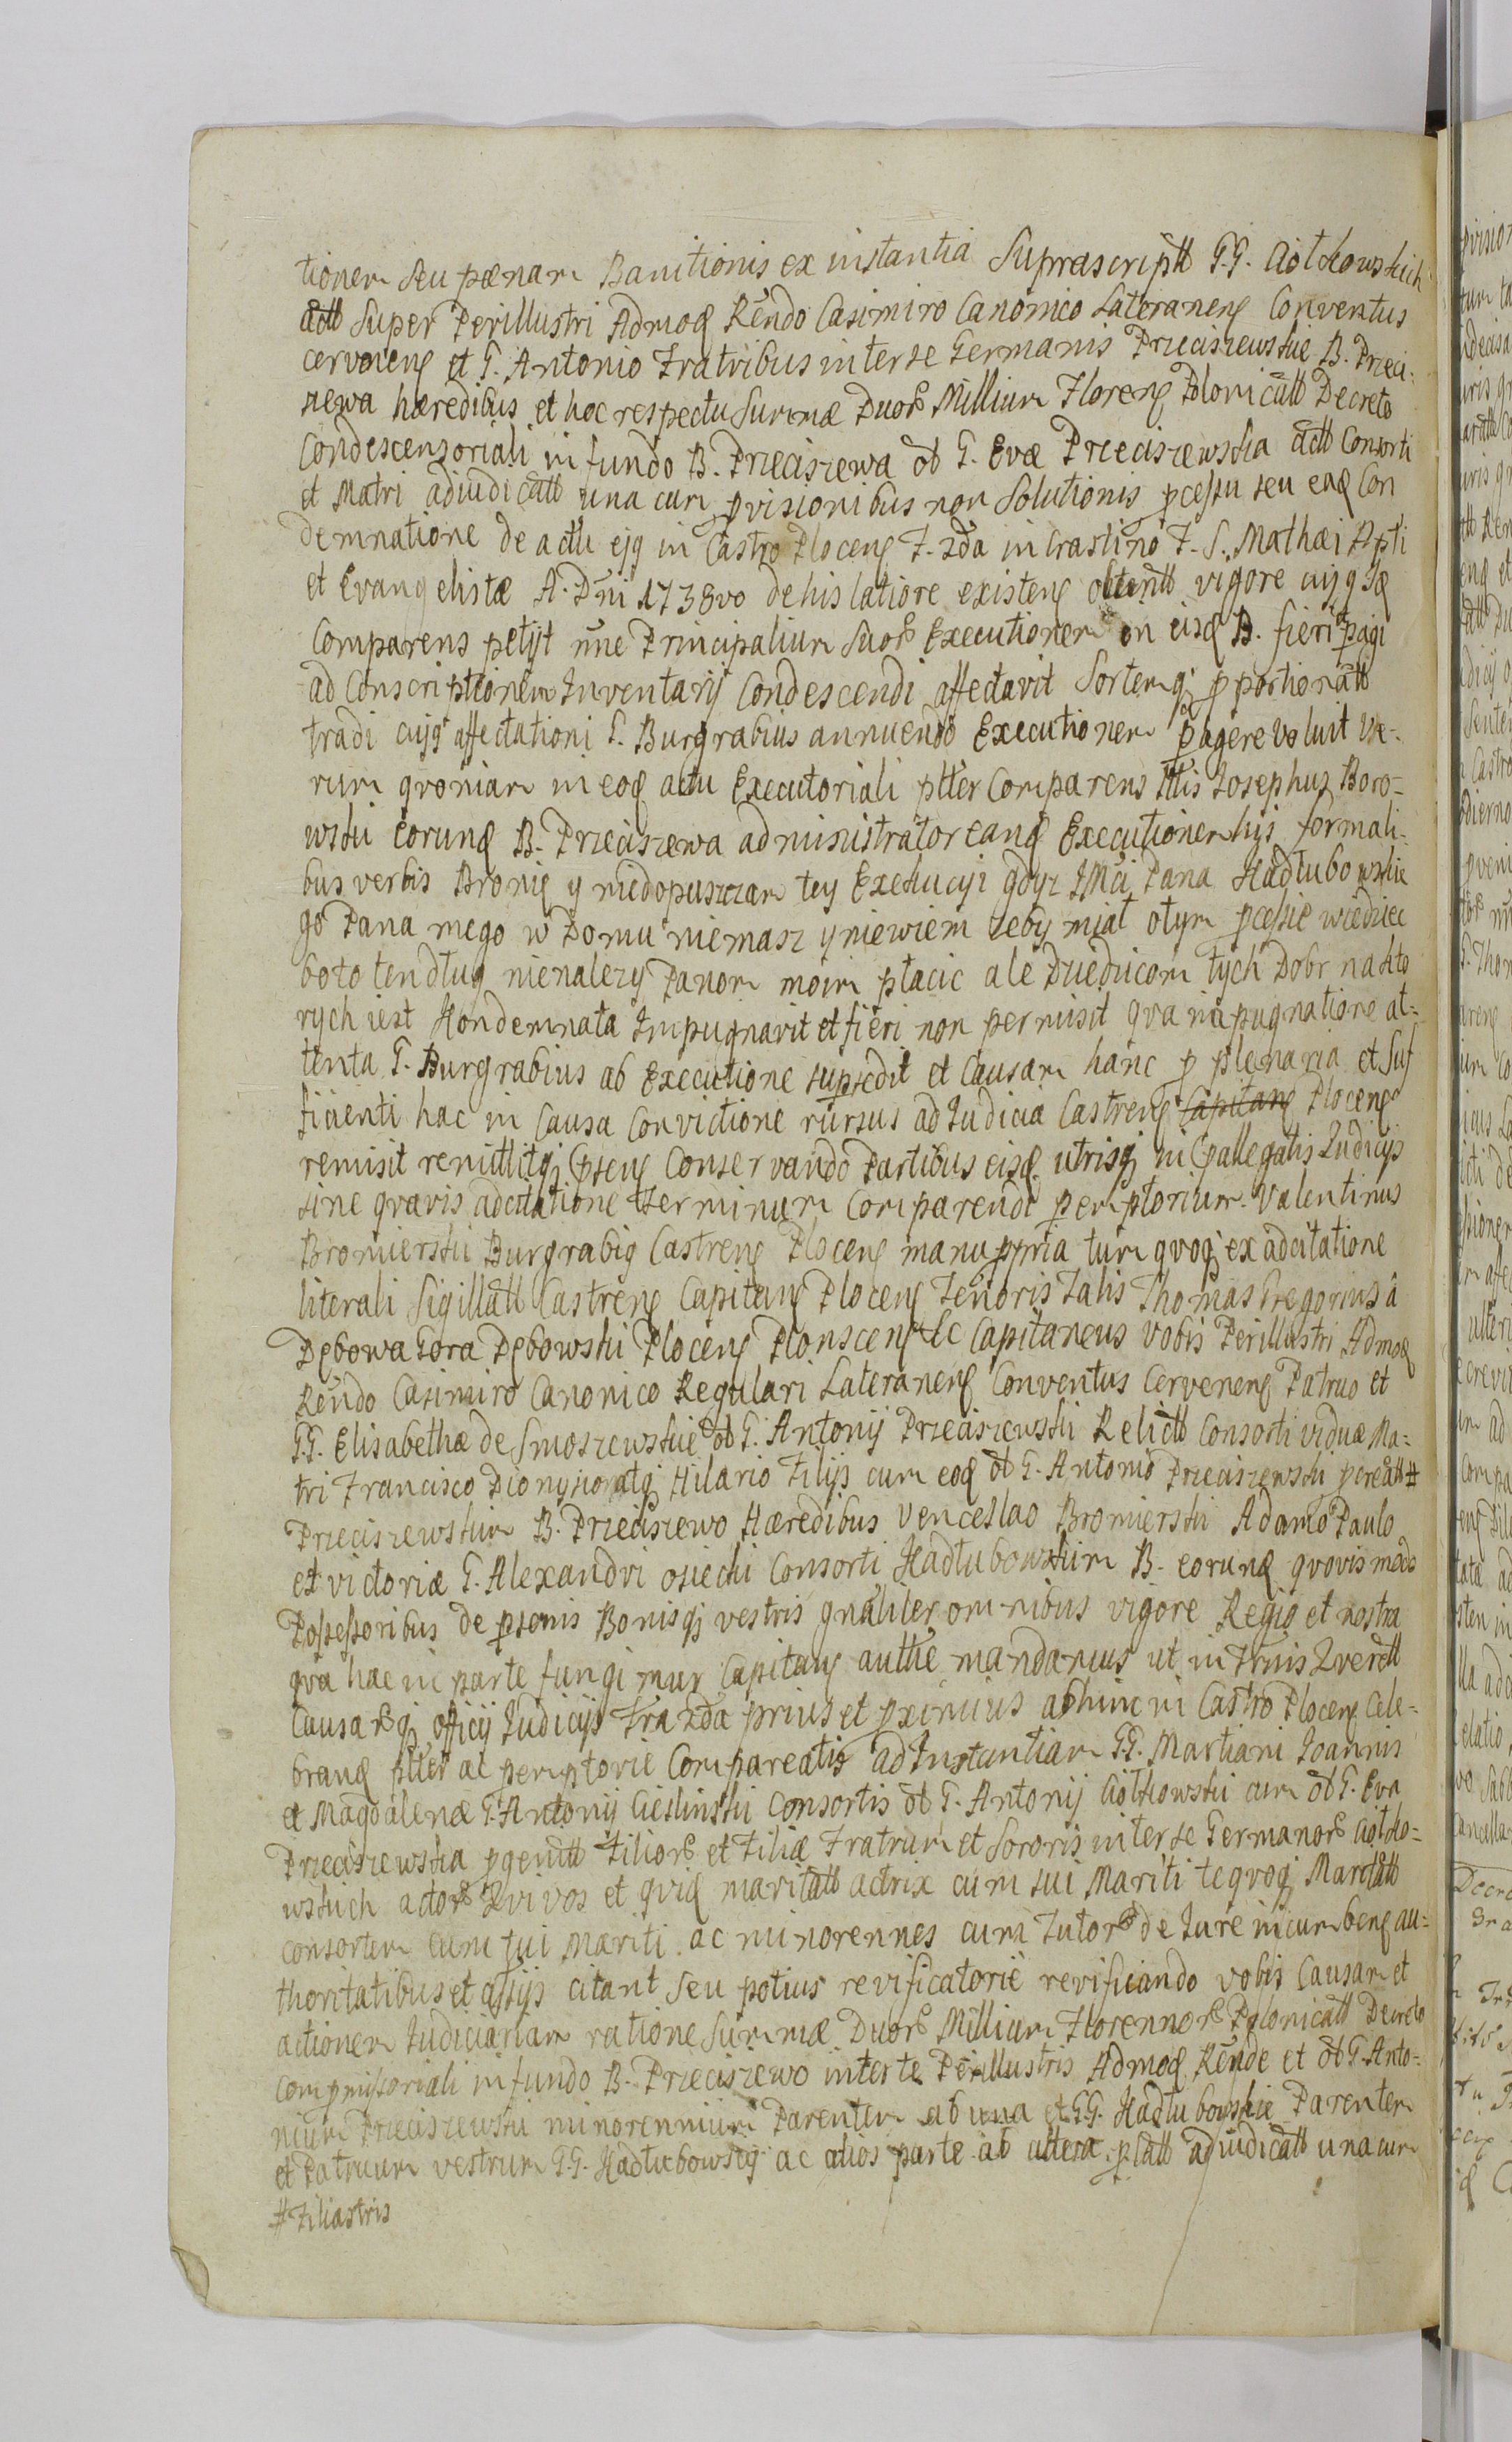 tionem seu pœnam Banitionis ex instantia Suprascriptt G.G. Ciołkowskich
actt Super Perillustri Admoq Rēndo Casimiro Canonico Lateraneng Conventus
cerveneng et G. Antonio Fratribus inter se Germanis Przeciszewskie B. Przeci-
szewa hæredibus et hoc respectu Summæ Duor Millium Floreng Polonicatt Decreto
Condescensoriali in fundo B. Przeciszewa ob G. Evæ Przeciszewska actt Consorti
et Matri adiudicatt una cum pvisionibus non Solutionis pcessu seu eaq Con
demnatione de actu ejg in Castro Ploceng F. 2da in Crastino F. S. Mathæi Apti
et Evangelistæ A. Dni 1738vo de his latiore existeng obtentt vigore cujg
Comparens petyt nne Principalium Suor Executionem in eisq B. fieri pagi
ad Conscriptionem Inventarij Condescendi affectavit Sortemq pportionatt
tradi cujg affectationi G. Burgrabius annuendo Executionem pagere voluit Ve-
rum qvoniam in eoq actu Executoriali ptter Comparens Ittis Josephus Boro-
wski eorunq B. Przeciszewa administrator eanq Executionem hijs formali-
bus verbis Bronię y niedopuszczam tey Exekucyi gdyz JMci Pana Hadłubowskie
go Pana mego w Domu niemasz y niewiem zeby miał o tym pcesie wiedziec
bo to ten dług nienalezy Panom moim płacic ale Dziedzicom tych Dobr na kto
rych iest Kondemnata Impugnavit et fieri non permisit qva impugnatione at-
tenta G. Burgrabius ab Executione supsedit et Causam hanc p plenaria et Suf
ficienti hac in Causa Convictione rursus ad Judicia Castreng Capitang Ploceng
remisit remittitq pseng Conservando Partibus eisq utrisq in pallegatis Judicijs
sine qvavis adcitatione terminum Comparendi peremptorium. Valentinus
Bromierski Burgrabig Castreng Ploceng manu ppria tum qvoq ex adcitatione
literali Sigillatt Castreng Capitang Ploceng Tenoris Talis Thomas Gregorius â
Dębowa Gora Dębowski Ploceng Plonsceng &c Capitaneus Vobis Perillustri Admoq
Rēndo Casimiro Canonico Regulari Lateraneng Conventus Cerveneng Patruo et
G.G. Elisabethæ de Smoszewskie ob G. Antonij Przeciszewski Relictt Consorti viduæ Ma-
tri Francisco Dionysio atq Hilario Filijs cum eoq ob G. Antonio Przeciszewski pcreatt #
Przeciszewskim B. Przeciszewo Hæredibus Venceslao Bromierski Adamo Paulo
et Victoriæ G. Alexandri Osiecki Consorti Hadłubowskim B. eorunq qvovis modo
Possessoribus de psonis Bonisq vestris gnaliter omnibus vigore Regio et nostra
qva hac in parte fungimur Capitang autthe mandamus ut in Trnis Qverett
Causarq officij Judicijs Fra 2da prius et pximius abhinc in Castro Ploceng Cele-
branq ptter ac peremptorie Compareatis ad Instantiam G.G. Martiani Joannis
et Magdalenæ G. Antonij Cieslinski Consortis ob G. Antonij Ciołkowski cum ob G. Eva
Przeciszewska pgenitt Filior et Filiæ Fratrum et Sororis inter se Germanor Ciołko-
wskich actor Qvi vos et qviq maritatt actrix cum sui Mariti teqvoq Maritatt
consortem cum tui Mariti ac minorennes cum Tutor de Jure incumbeng au-
thoritatibus et assijs citant seu potius revificatorie revificiando vobis Causam et
actionem Judiciariam ratione Summæ Duor Millium Florennor Polonicatt Decreto
Compmissoriali in fundo B. Przeciszewo inter te Perillustris Admoq Rēnde et ob G. Anto-
nium Przeciszewski minorennium Parentem ab una et G.G. Hadłubowskie Parentem
et Patruum vestrum G.G. Hadłubowscy ac alios parte ab altera platt adjudicatt una cum
# Filiastris